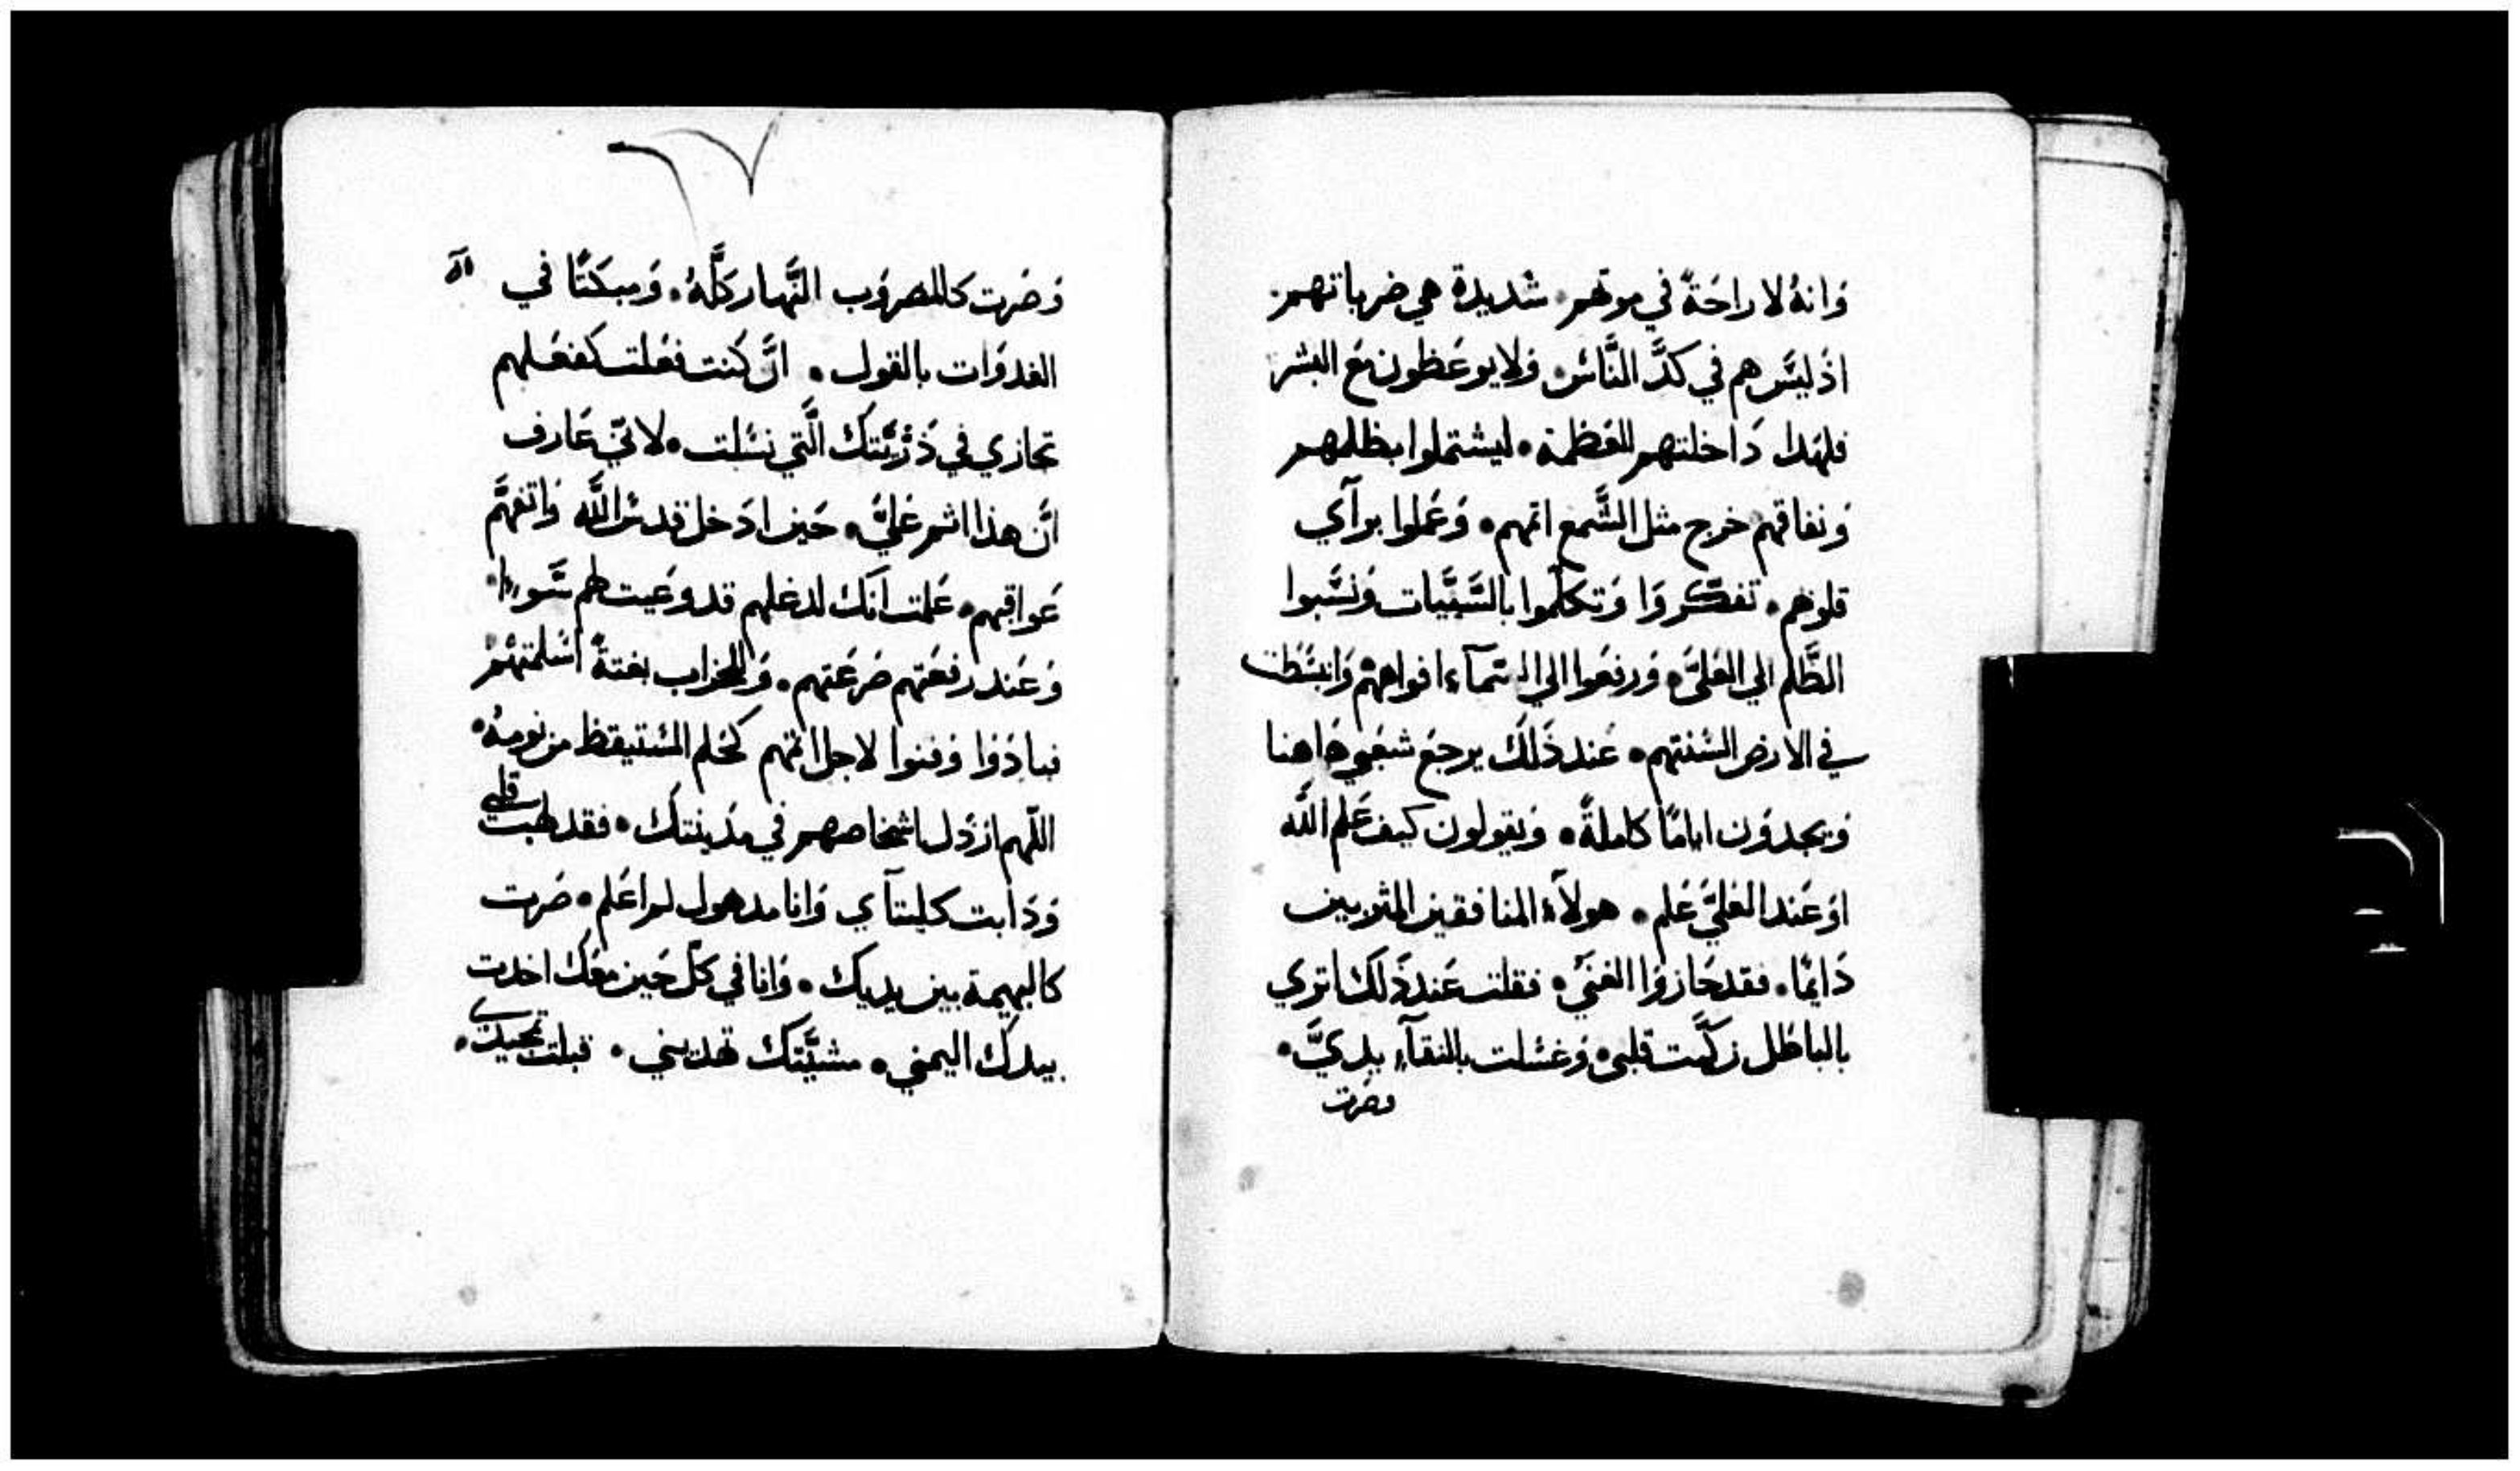 وَانهُ لا راحَةً في موتهم. شديدة هي ضرباتهم
اذ ليسَ هم في كدَّ النَّاس. وَلا يوعَظون مَع البشر
فلهَدا دَاخلتهم العَظمة. ليشتملوا بظلمهم
وَنفاقهم خرج مثل الشَّمع اتمهم. وَعَملوا برآي
قلوبهم. تفكروَا وَتكلَّموا بالسَّيَّيات وَنسَّبوا
الظَّلم الي العَليَّ. وَرفعَوا الي السَّمآء افواههمْ وَانبسَطت
في الارض السنتهم. عَند ذَلك يرجعَ شعَبي هَاهنا
وَيجدوَن اياماً كاملةً. وَيقولون كيف عَلم اللَّه
اوَ عَند العَليَّ عَلم. هولآء المنافقين المثربين
دَايمًا. فقد حَازوَا الغنَي. فقلت عَند ذَلك اتري
بالباطل زكَّيت قلبي. وَغسَلت بالنقآء يديَّ.
وصَرت
وَصَرت كالمصروَب النَّهار كلَّهُ. وَمبكتًا في الا
الغدوَات بالقول. انَّ كنت فعَلت كفعَلهم
تجازي في ذرّيَّتك الَّتي نسَلت. لانّي عَارف
انَّ هذا اثم عَليَّ. حَين ادَخل قدس اللَّه وَاتفهَّم
عَواقبهم. عَلمت انَك لدغلهم قد وعَيت لهم سَّورا.
وَعَند رفعَتهم صَرعَتهم. وَللخراب بغتةً اسَلمتهمْ
فبادَوا وَفنوا لاجل اثمهم كحَلم المستيقظ من نومهُ.
اللَّهم ازذل اشخاصهم في مدَينتك. فقد لهبت قلبي
وَذابت كليتآي وَانا مدهول لم اعَلم. صَرت
كالبهيمة بين يديك. وَانا في كلّ حَين معَك اخدت
بيدك اليمني. مشيَّتك تهديني. قبلت تمجيدك.